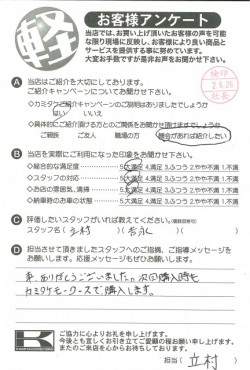 軽
お客様アンケート
当店では、頂いたお客様の声を可能
な限り現場に反映し、お客様により良い商品と
サービスを提供する事に努めています。
大変お手数ですが是非お声をお聞かせ下さい。
A 当店はご紹介を大切にしております。
ご紹介キャンペーンについてお聞かせ下さい。
◇カミタケご紹介キャンペーンのご説明はありましたでしょうか
はい いいえ
◇具体的にご紹介頂ける方とのご関係をお聞かせ頂けますでしょうか
ご親戚 ご友人 職場の方 機会があれば紹介したい
B 当店を実際にご利用になった印象をお聞かせ下さい。
◇総合的な満足度 5.大満足 4.満足 3.ふつう 2.やや不満 1.不満
◇スタッフの対応 5.大満足 4.満足 3.ふつう 2.やや不満 1.不満
◇お店の雰囲気、清掃 5.大満足 4.満足 3.ふつう 2.やや不満 1.不満
◇納車時のお車の状態 5.大満足 4.満足 3.ふつう 2.やや不満 1.不満
C 評価したいスタッフがいれば教えてください。
スタッフ名( 立村 )( 吉永 )( )
D 担当させて頂きましたスタッフへのご指摘、ご指導メッセージを
お願いします。応援メッセージもぜひお願いします。
車、ありがとうございました。次回購入時も
カミタケモータースで購入します。
K
ご協力に心よりお礼を申し上げます。
今後とも宜しくお引き立てご愛顧の程お願い申し上げます。
またのご来店を心からお待ちしております。
担当( 立村 )